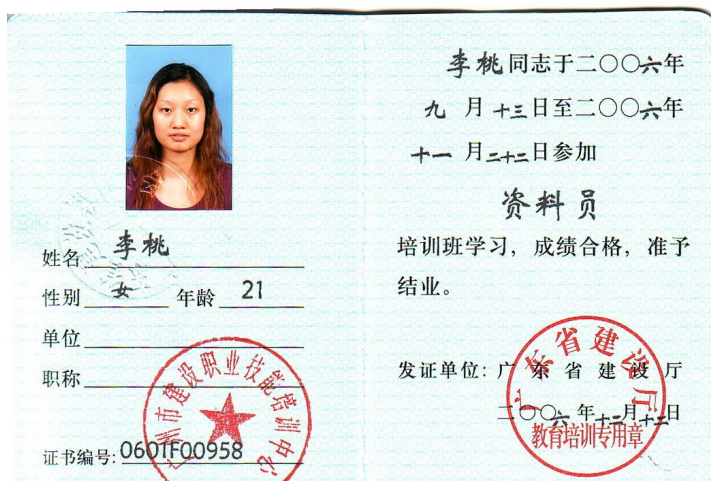 姓名 李桃
性别 女 年龄 21
单位
职称
证书编号: 0601F00958
广州市建设职业技能培训中心
李桃同志于二〇〇六年
九月十三日至二〇〇六年
十一月二十二日参加
资料员
培训班学习，成绩合格，准予
结业。
发证单位: 广东省建设厅
二〇〇六年十二月十二日
广东省建设厅
教育培训专用章